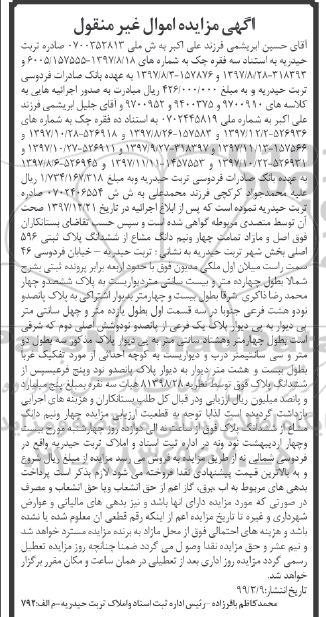 آگهی مزایده اموال غیر منقول
آقای حسین ابریشمی فرزند علی اکبر به ش ملی ۰۷۰۰۳۵۲۸۱۳ صادره تربت
حیدریه به استناد سه فقره چک به شماره های ۱۳۹۷/۸/۱۸-۶۰۰۵/۱۵۷۵۵۵
۳۱۸۳۹۳-۱۳۹۷/۸/۲۸ و ۱۵۷۸۷۶-۱۳۹۷/۸/۳ به عهده بانک صادرات فردوسی
تربت حیدریه و به مبلغ ۴۲۶/۰۰۰/۰۰۰ ریال مبادرت به صدور اجرائیه هایی به
کلاسه های ۹۷۰۰۹۹۰ و ۹۴۰۰۳۷۵ و ۹۷۰۰۹۵۲ و آقای جلیل ابریشمی فرزند
علی اکبر به شماره ملی ۰۷۰۲۴۴۵۸۱۹ به استناد ده فقره چک به شماره های
۵۲۶۹۳۶-۱۳۹۷/۱۲/۲ و ۱۵۷۵۸۳-۱۳۹۷/۸/۲۶ و ۵۲۶۹۱۸-۱۳۹۷/۱۰/۲۸ و
۱۵۷۵۶۶-۱۳۹۷/۱۱/۱۳ و ۳۱۸۳۹۷-۱۳۹۷/۹/۲۷ و ۵۲۶۹۱۱-۱۳۹۷/۱۰/۲۷ و
۵۲۶۹۲۱-۱۳۹۷/۱۰/۲۲ و ۱۴۵۷۵۵۳-۱۳۹۷/۱۱/۱۱ و ۵۲۶۹۴۵-۱۳۹۷/۸/۶
به عهده بانک صادرات فردوسی تربت حیدریه وبه مبلغ ۱/۷۳۴/۱۶۷/۳۱۸ ریال
علیه محمدجواد کرکچی فرزند محمدعلی به ش ش ۰۷۰۲۴۰۶۵۵۴ صادره
تربت حیدریه نموده است که پس از ابلاغ اجرائیه در تاریخ ۱۳۹۷/۱۲/۲۱ صحت
آن توسط متصدی مربوطه گواهی شده است و سپس حسب تقاضای بستانکاران
فوق اصل و مازاد تمامت چهار ونیم دانگ مشاع از ششدانگ پلاک ثبتی ۵۹۶
اصلی بخش شهر تربت حیدریه به نشانی : تربت حیدریه – خیابان فردوسی ۴۶
سمت راست میلان اول ملکی مدیون فوق با حدود اربعه برابر پرونده ثبتی بشرح
شمالا بطول چهارده متر و بیست سانتی متردیواریست به پلاک ششصدو چهار
محمد رضا ذاکری شرقا بطول بیست و چهارمتر بدیوار اشتراکی به پلاک پانصدو
نودو هشت فرعی جنوبا در سه قسمت اول بطول یازده متر و چهل سانتی متر
پی دیوار به پی دیوار پلاک یک فرعی از پانصدو نودوشش اصلی دوم که شرقی
است بطول چهارمتر وهشتاد سانتی متر به پی دیوار پلاک مذکور سه بطول دو
متر و سی سانتیمتر درب و دیواریست به کوچه احداثی از مورد تفکیک غربا
بطول بیست و هشت متر دیوار به دیوار پلاک پانصدو نود وپنج فرعیسپس از
ششدانگ پلاک فوق توسط نظریه ۸۱۳۹۸/۲۸ هیات سه نفره بمبلغ پنج میلیارد
و پانصد میلیون ریال ارزیابی ودر قبال کل طلب بستانکاران و هزینه های اجرایی
بازداشت گردیده است لذابا توجه به قطعیت ارزیابی مزایده چهار ونیم دانگ
مشاع از ششدانگ پلاک فوق از ساعت نه الی دوازده روز چهارشنبه مورخ بیست
وچهار اردیبهشت نود ونه در اداره ثبت اسناد و املاک تربت حیدریه واقع در
فردوسی شمالی نه از طریق مزایده به فروش می رسد مزایده از مبلغ ریال شروع
و به بالاترین قیمت پیشنهادی نقدا فروخته می شود لازم بذکر است پرداخت
بدهی های مربوط به آب، برق، گاز اعم از حق انشعاب ویا حق انشعاب و مصرف
در صورتی که مورد مزایده دارای آنها باشد و نیز بدهی های مالیاتی و عوارض
شهرداری و غیره تا تاریخ مزایده اعم از اینکه رقم قطعی آن معلوم شده یا نشده
باشد و هزینه های احتمالی فوق از محل مازاد به برنده مزایده مسترد خواهد شد
و نیم عشر و حق مزایده نقدا وصول می گردد ضمنا چنانچه روز مزایده تعطیل
رسمی گردد مزایده روز اداری بعد از تعطیلی در همان ساعت و مکان مقرر برگزار
خواهد شد.
تاریخ انتشار: ۹۹/۳/۹
محمدکاظم باقرزاده – رئیس اداره ثبت اسناد واملاک تربت حیدریه–م الف: ۷۹۲